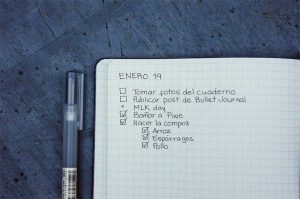 ENERO 19
Tomar fotos del cuaderno
Publicar post de Bullet Journal
MLK day
Bañar a Pixie
Hacer la compra
Arroz
Espárragos
Pollo